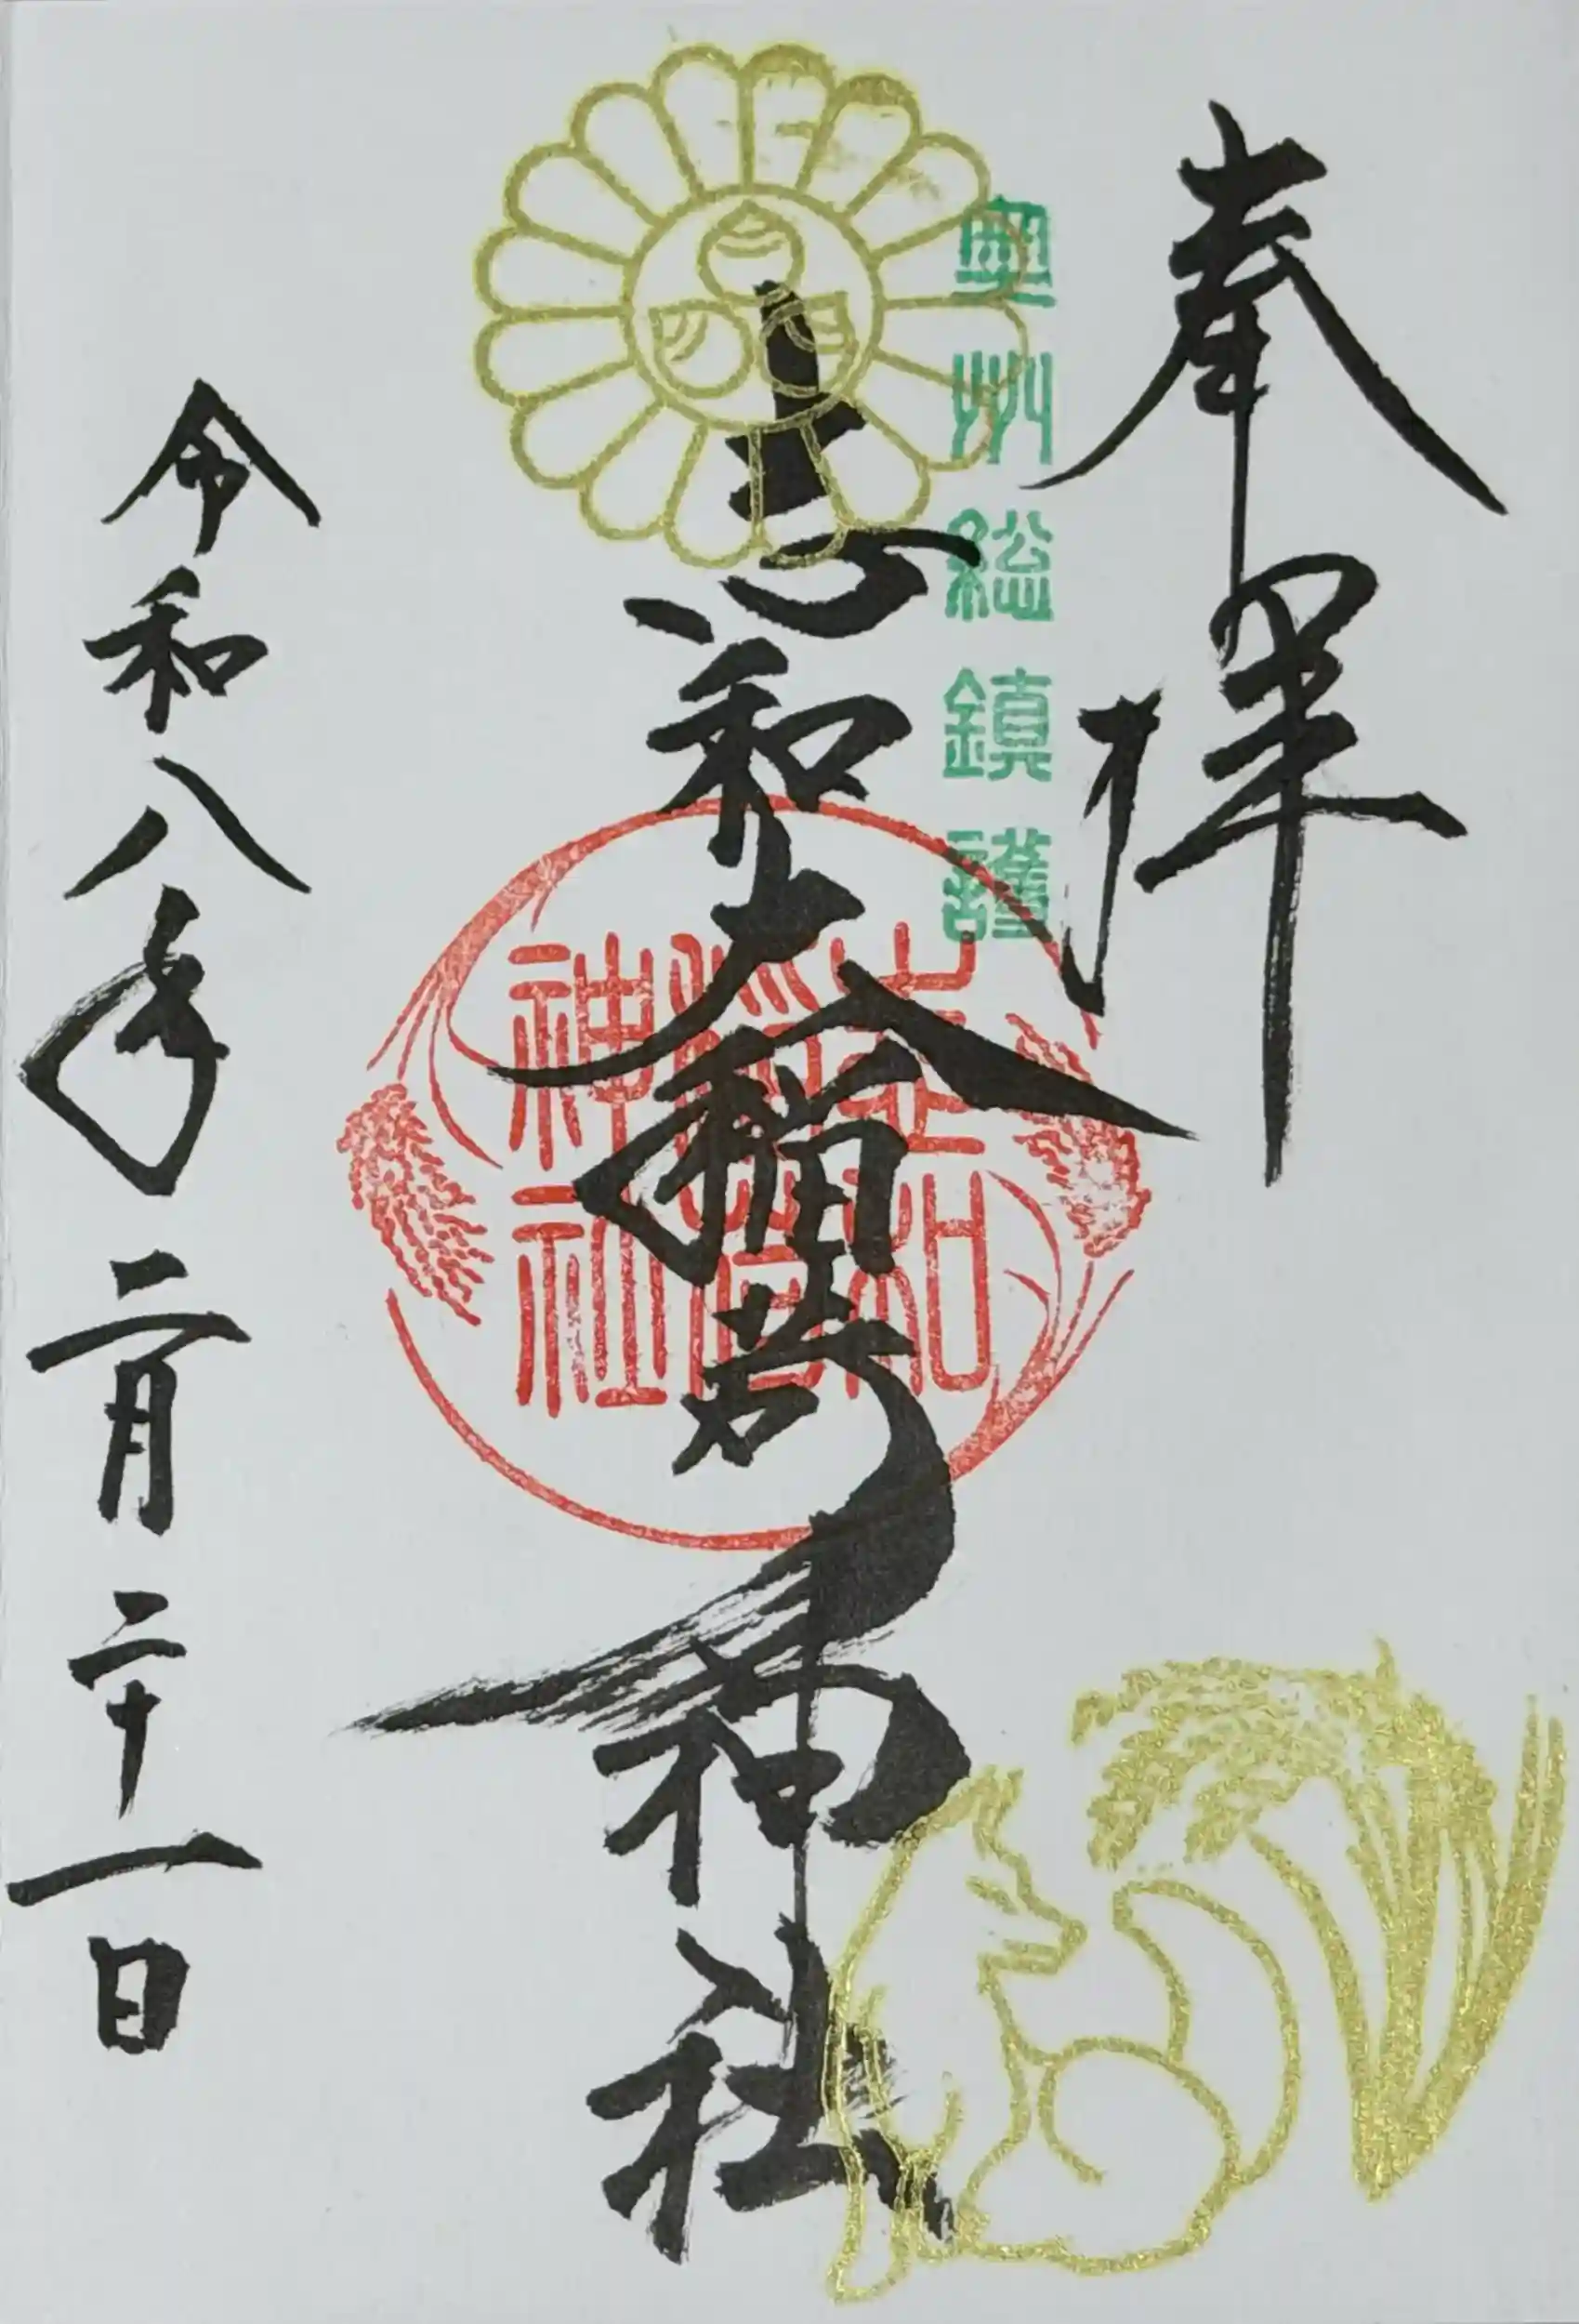 奉拝
奥州総鎮護
志和大稲荷神社
志和
稲荷
神社
令和八年二月二十一日